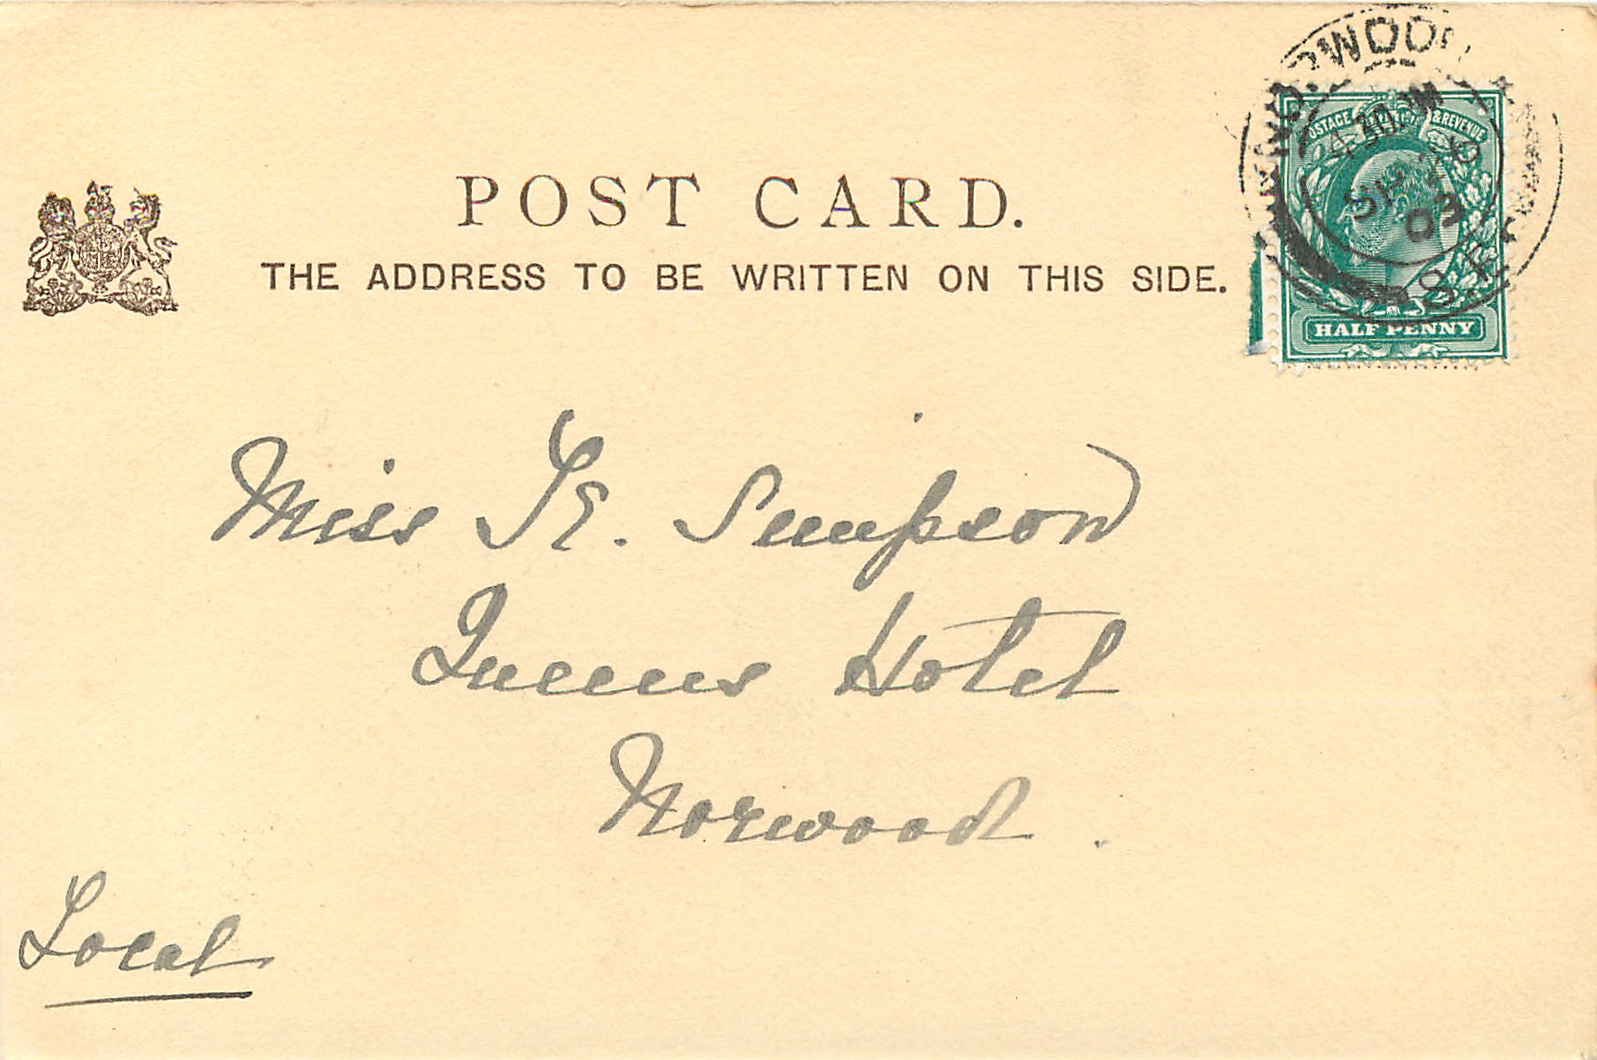 POST CARD.
THE ADDRESS TO BE WRITTEN ON THIS SIDE.
POSTAGE & REVENUE
HALF PENNY
Miss E. Simpson
Queens Hotel
Norwood.
Local